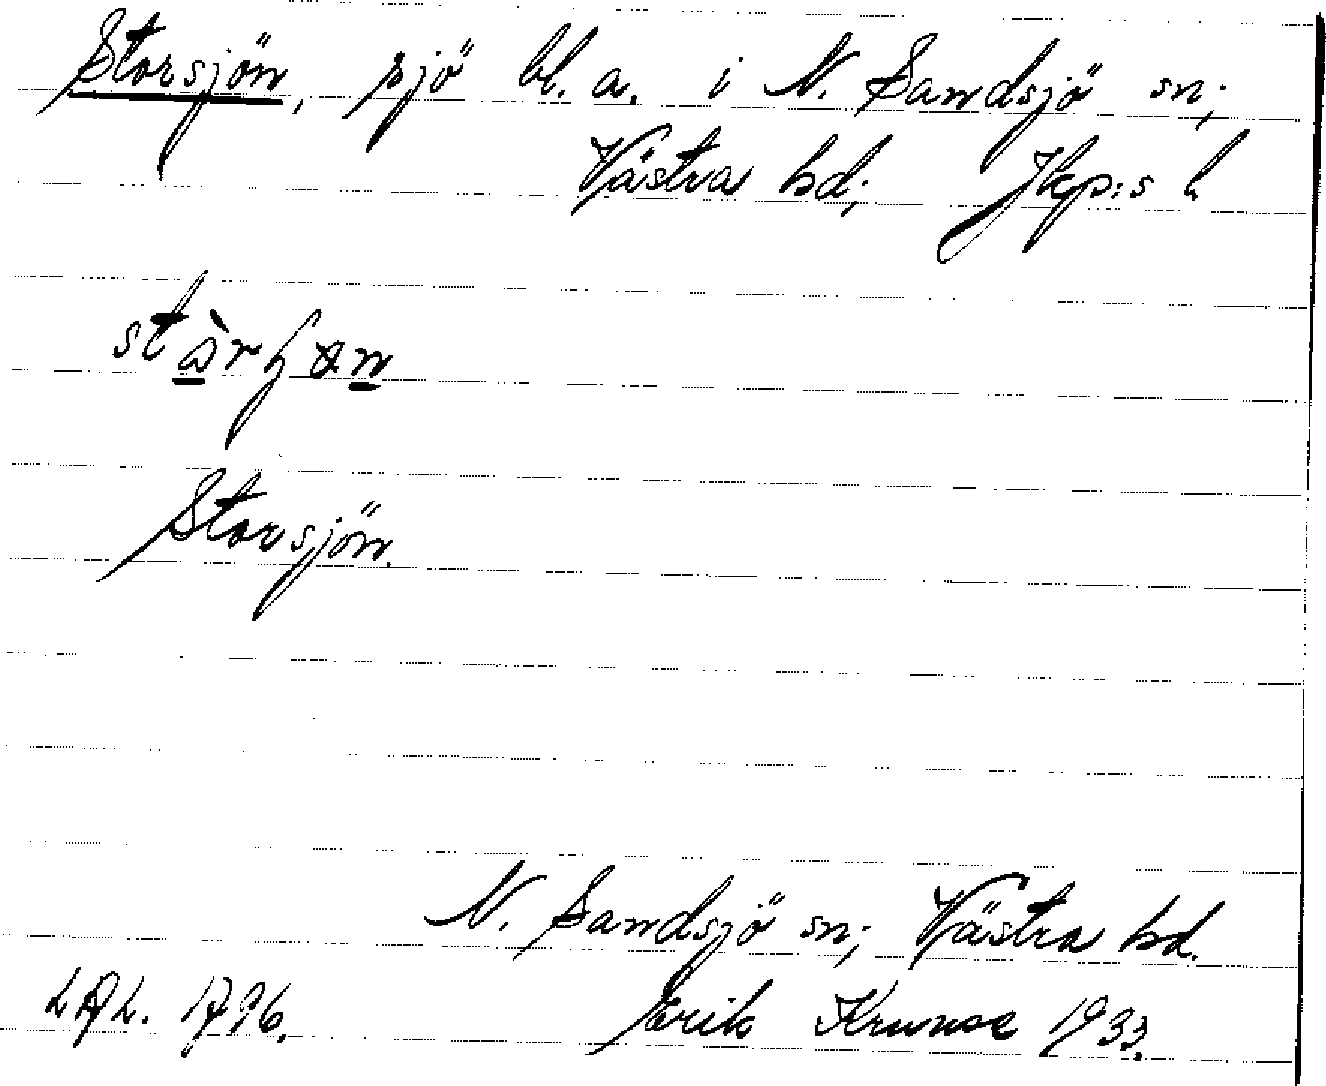 Storsjön, sjö bl. a. i N. Sandsjö sn;
Västra hd; Jkp:s l
Storsjön.
N. Sandsjö sn; Västra hd.
LAL. 1796. Erik Kruuse 1933.